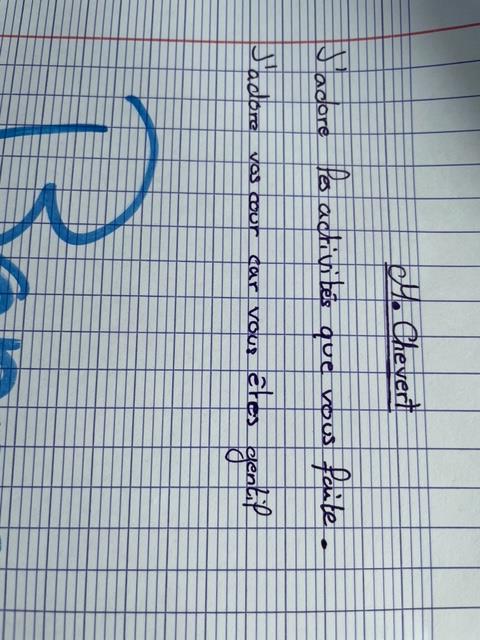 M. Chevert
J'adore les activités que vous faite.
J'adore vos cour car vous êtes gentil